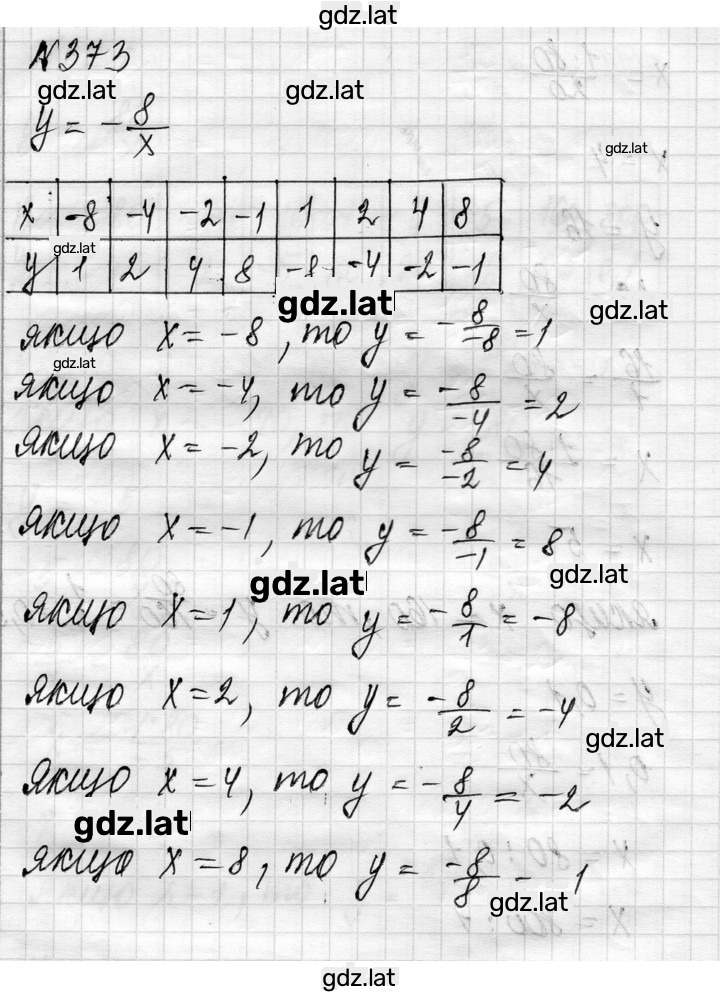 gdz.lat
№373
gdz.lat gdz.lat
y = - 8/x
gdz.lat
x -8 -4 -2 -1 1 2 4 8
gdz.lat
y 1 2 4 8 -8 -4 -2 -1
gdz.lat gdz.lat
якщо x = -8, то y = - 8/-8 = 1
gdz.lat
якщо x = -4, то y = -8/-4 = 2
якщо x = -2, то y = -8/-2 = 4
якщо x = -1, то y = -8/-1 = 8
gdz.lat gdz.lat
якщо x = 1, то y = - 8/1 = -8
якщо x = 2, то y = -8/2 = -4
gdz.lat
якщо x = 4, то y = - 8/4 = -2
gdz.lat
якщо x = 8, то y = -8/8 - 1
gdz.lat
gdz.lat